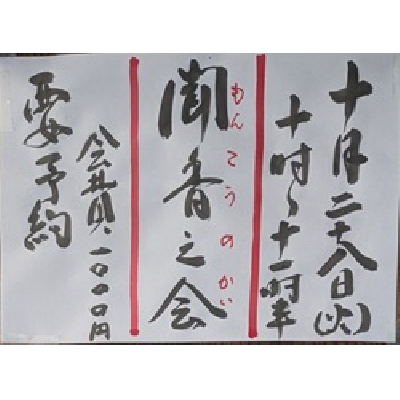 十月二十八日(火)
十時〜十一時半
聞香之会
もんこうのかい
会費、一〇〇〇円
要予約